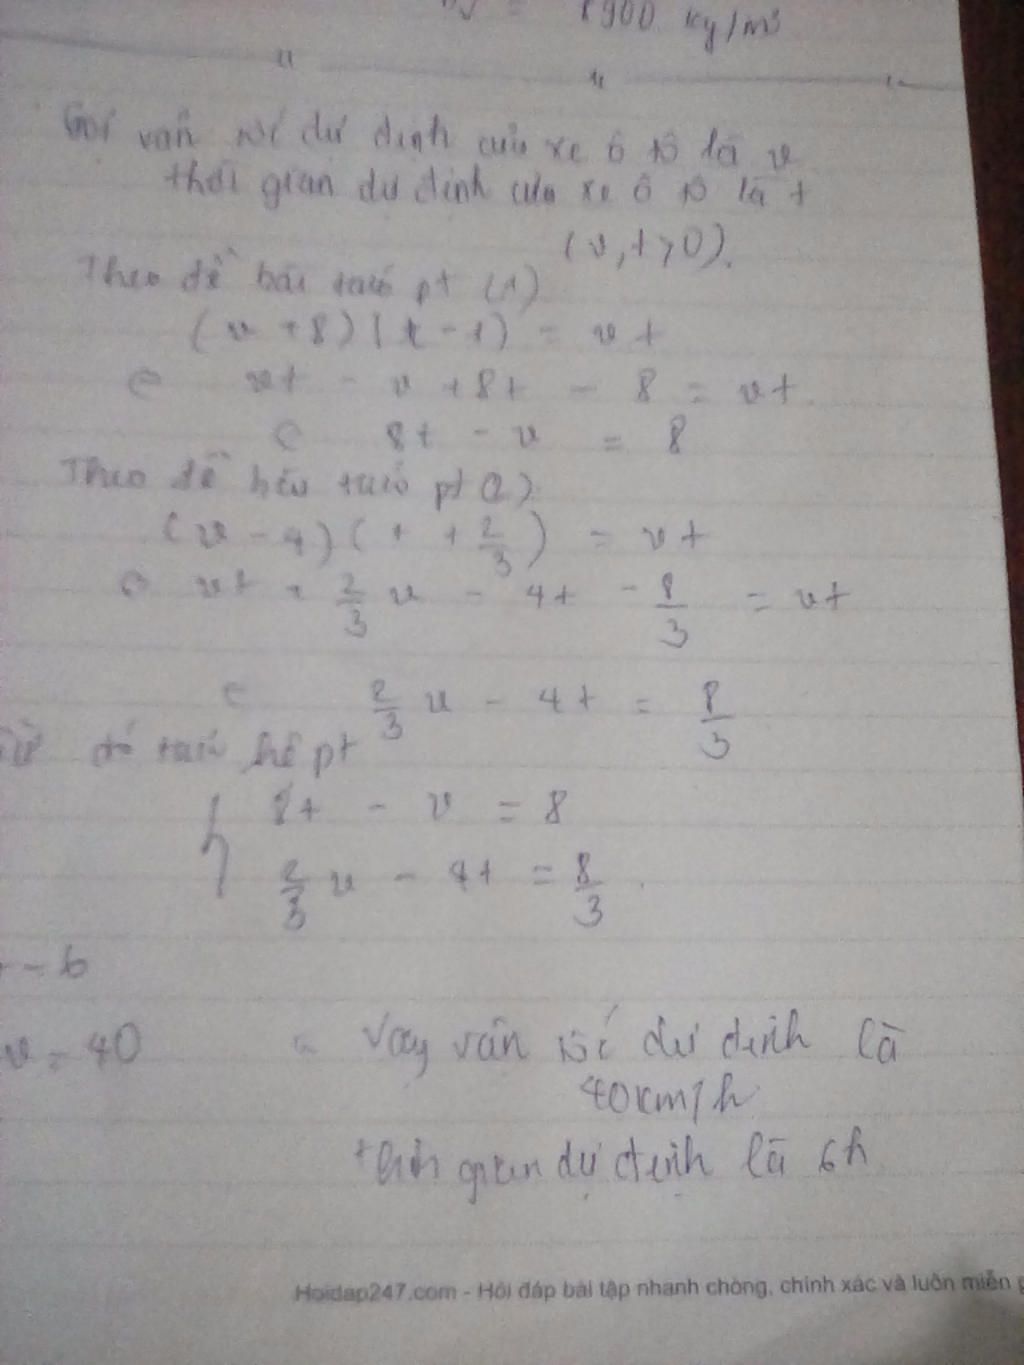 = 8900 kg/m³
Gọi vân tốc dự định của xe ô tô là v
thời gian dự định của xe ô tô là t
(v, t > 0).
Theo đề bài ta có pt (1)
(v + 8)(t - 1) = vt
⇔ vt - v + 8t - 8 = vt
⇔ 8t - v = 8
Theo đề bài ta có pt (2)
(v - 4)(t + 2/3) = vt
⇔ vt + 2/3 v - 4t - 8/3 = vt
⇔ 2/3 v - 4t = 8/3
Từ đó ta có hê pt
{ 8t - v = 8
2/3 v - 4t = 8/3
t = 6
v = 40 Vay vân tốc dư định là
40km/h
thời gian dự định là 6h
Hoidap247.com - Hỏi đáp bài tập nhanh chóng, chính xác và luôn miễn